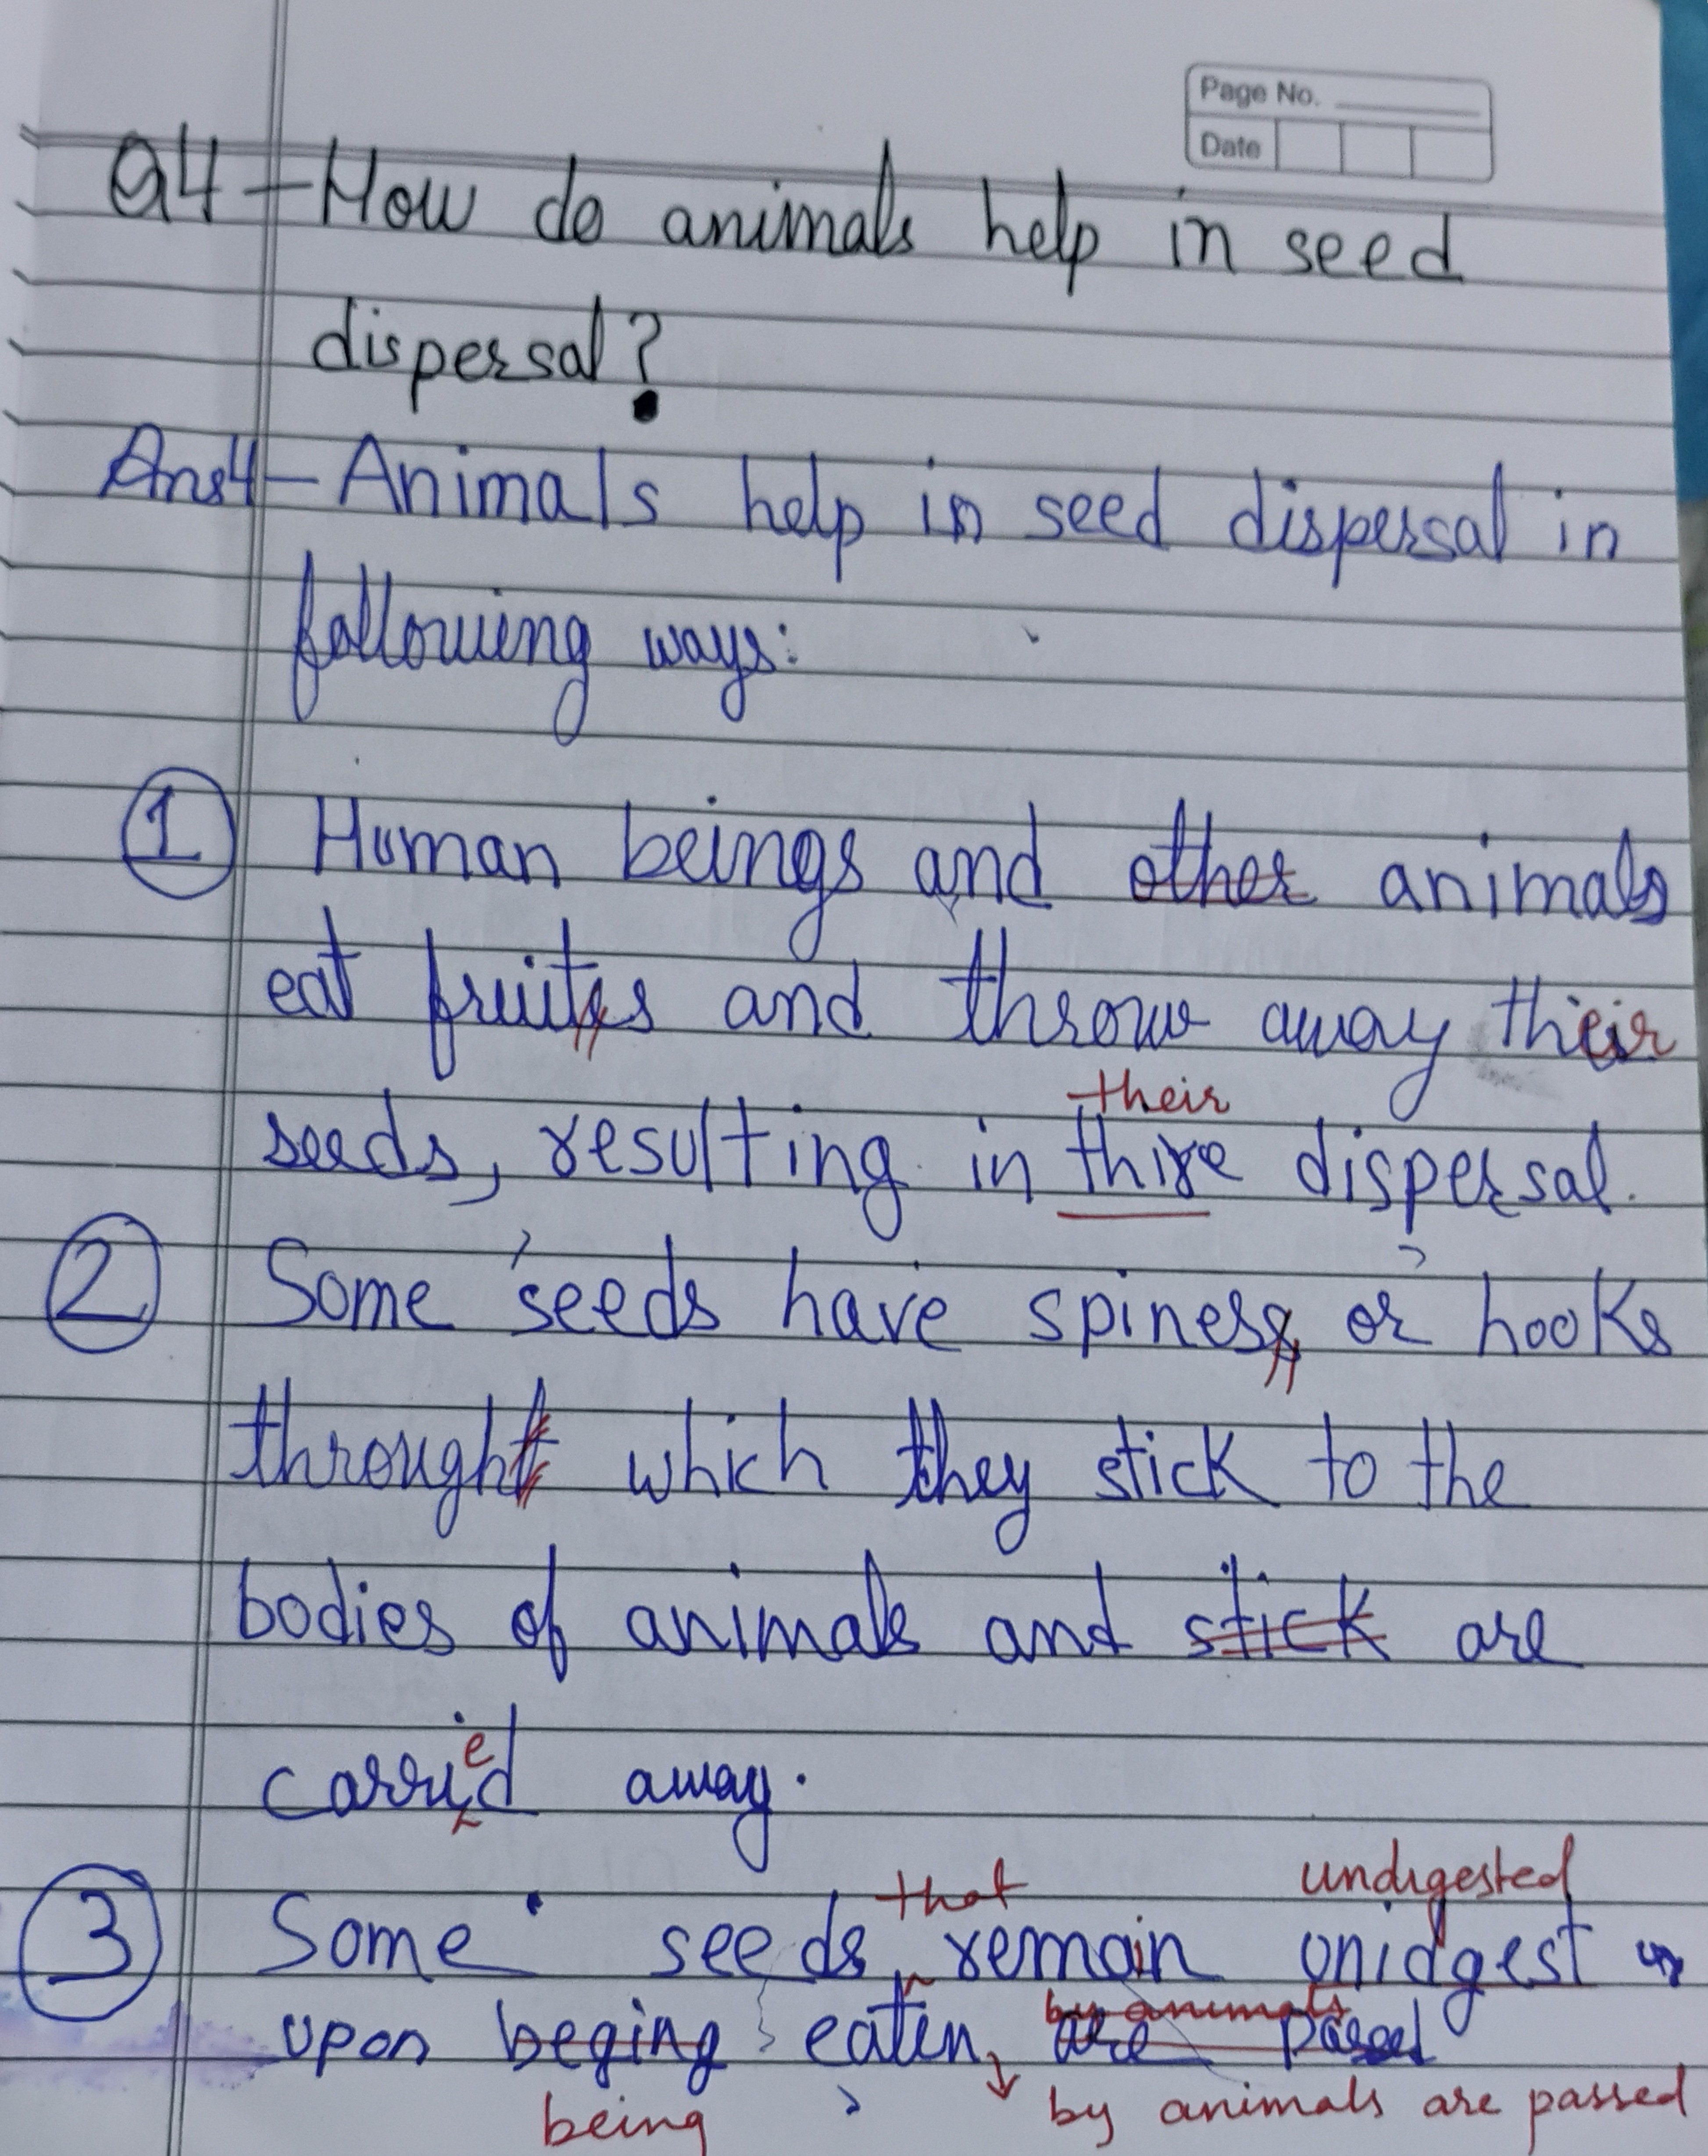 Page No.
Date
Q4-How do animals help in seed
dispersal?
Ans4-Animals help in seed dispersal in
following ways:
1 Human beings and other animals
eat fruits and throw away their
their
seeds, resulting in thire dispersal.
2 Some seeds have spines or hooks
through which they stick to the
bodies of animals and stick are
e
carrid away.
that undigested
3 Some seeds remain onidgest
by animals
upon beging eaten, are passed
being by animals are passed